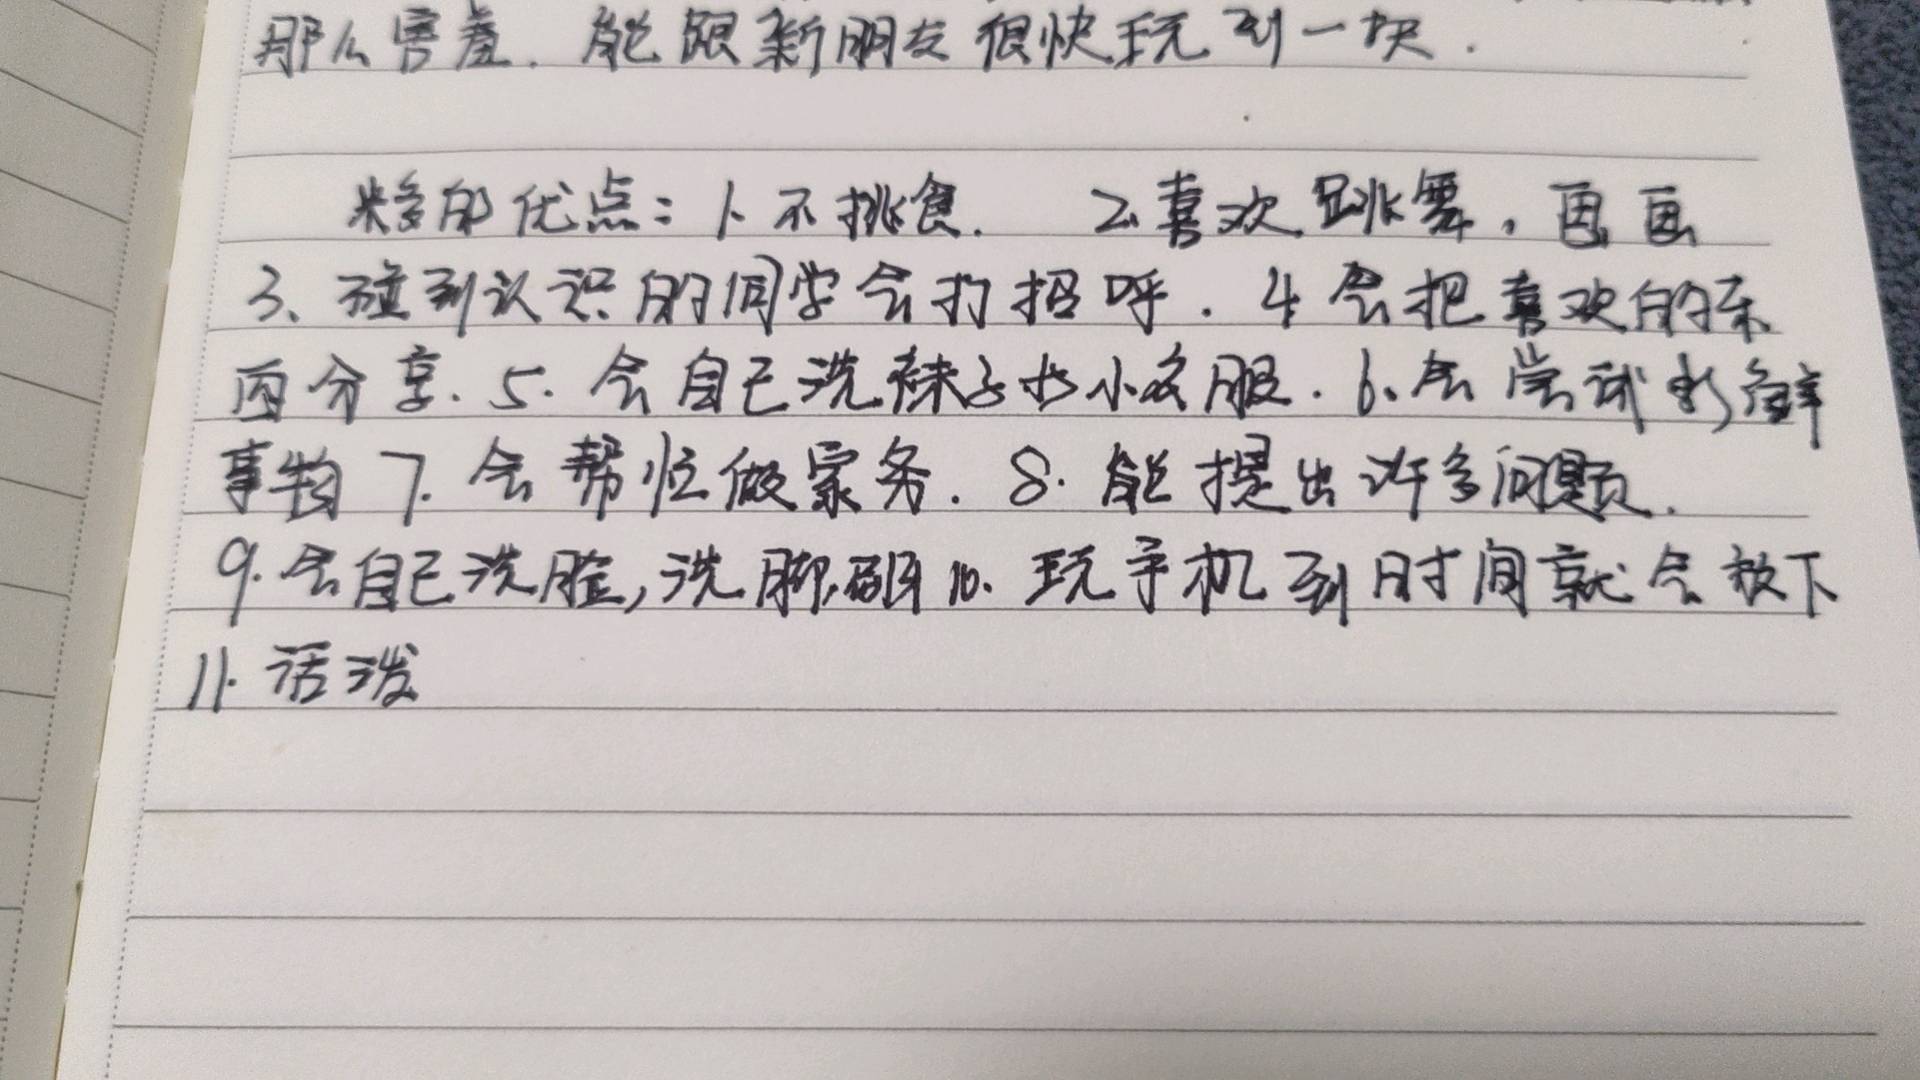 那么害羞. 能跟新朋友很快玩到一块.
的优点: 1. 不挑食. 2. 喜欢跳舞, 画画
3、碰到认识的同学会打招呼. 4 会把喜欢的东
西分享. 5. 会自己洗袜子小衣服. 6. 会尝试新鲜
事物 7. 会帮忙做家务. 8. 能提出许多问题.
9. 会自己洗脸, 洗脚, 刷牙 10. 玩手机到时间就会放下
11. 活泼